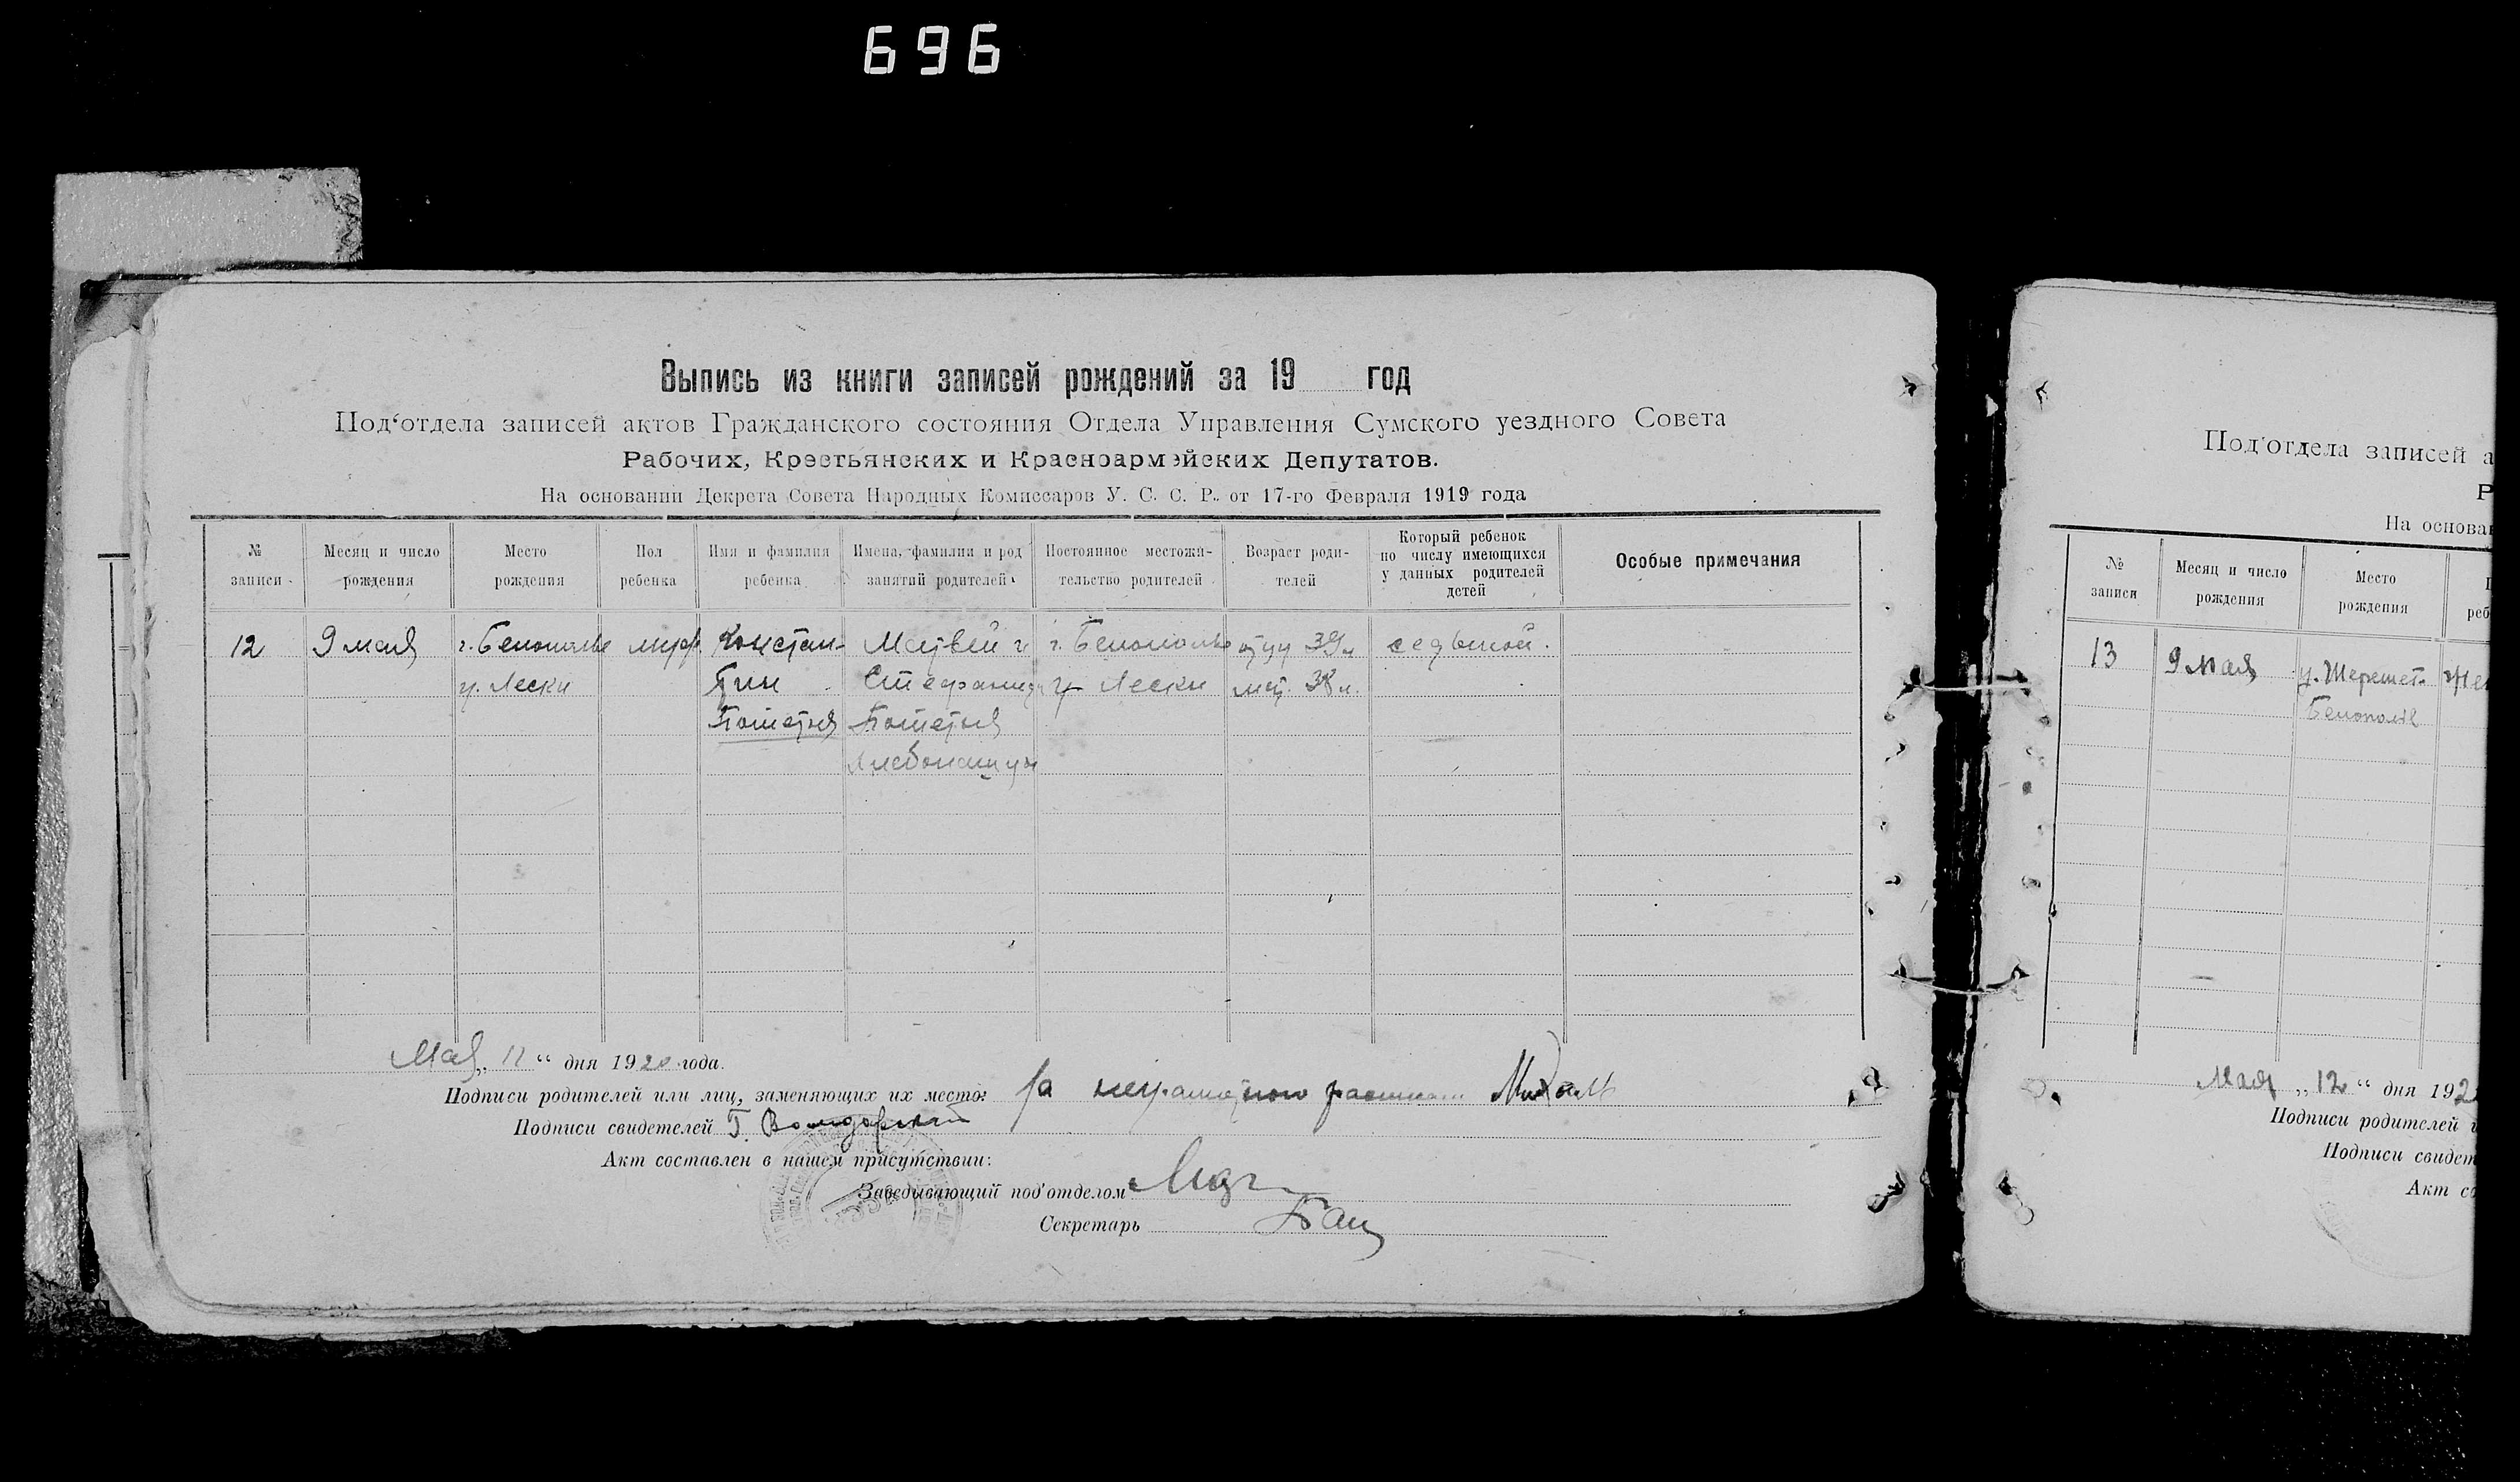 696
Выпись из книги записей рождений за 19 год
Под'отдела записей актов Гражданского состояния Отдела Управления Сумского уездного Совета
Рабочих, Крестьянских и Красноармейских Депутатов.
На основании Декрета Совета Народных Комиссаров У. С. С. Р. от 17-го Февраля 1919 года
№ записи
Месяц и число рождения
Место рождения
Пол ребенка
Имя и фамилия ребенка
Имена, фамилии и род занятий родителей
Постоянное местожительство родителей
Возраст родителей
Который ребенок по числу имеющихся у данных родителей детей
Особые примечания
12
9 мая
г. Белополье
ц. Лески
муж.
Констан-
тин
Матвей и
Стефанида
г. Белополье
ц. Лески
39 л
мат. 38 л.
седьмой.
Мая „ 11 “ дня 1920 года.
Подписи родителей или лиц, заменяющих их место: За неграмотного
Подписи свидетелей Г.
Акт составлен в нашем присутствии:
Заведывающий под'отделом
Секретарь
Под'отдела записей а
Р
На основан
№ записи
Месяц и число рождения
Место рождения
реб
13
9 мая
Белополье
Мая „ 12 “ дня 192
Подписи родителей и
Подписи свидет
Акт со